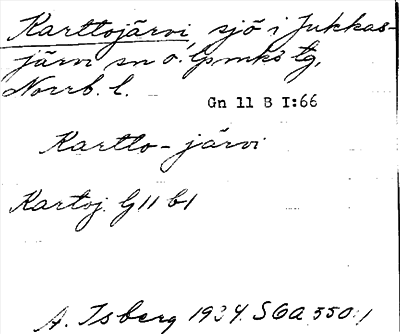 Karttojärvi, sjö i Jukkas-
järvi sn o. lpmks tg,
Norrb. l.
Gn 11 B I:66
Kartto-järvi
Kartoj. G 11 b1
A. Isberg 1934. SOA 550:1